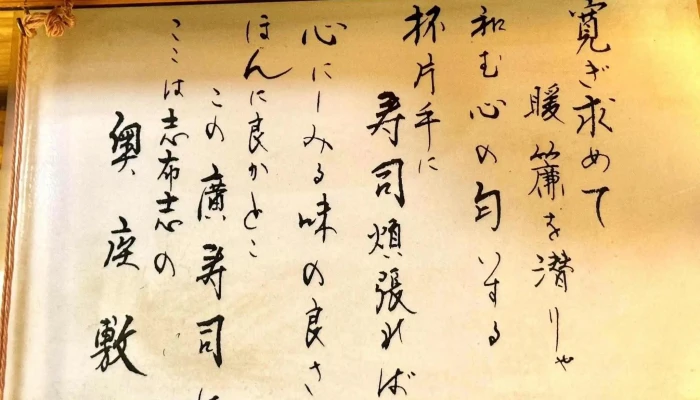 寛ぎ求めて
暖簾を潜りゃ
和む心の匂いする
杯片手に
寿司頬張れば
心にしみる味の良さ
ほんに良かとこ
この廣寿司は
ここは志布志の
奥座敷